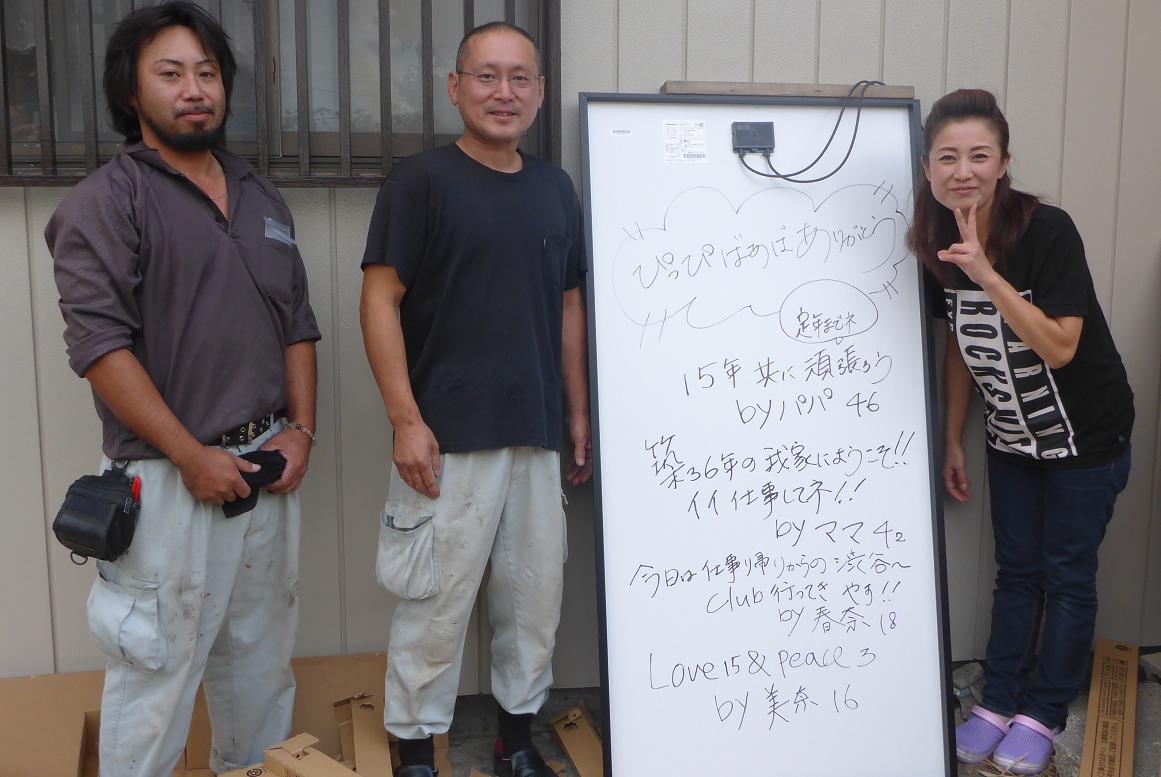 ぴっぴばあばありがとう
定年までネ
15年共に頑張ろう
byパパ 46
築36年の我家にようこそ!!
イイ仕事してネ!!
byママ 42
今日は仕事帰りからの渋谷〜
club行ってきやす!!
by春奈 18
Love15&peace3
by美奈 16
LEARNING
ROCKSUN